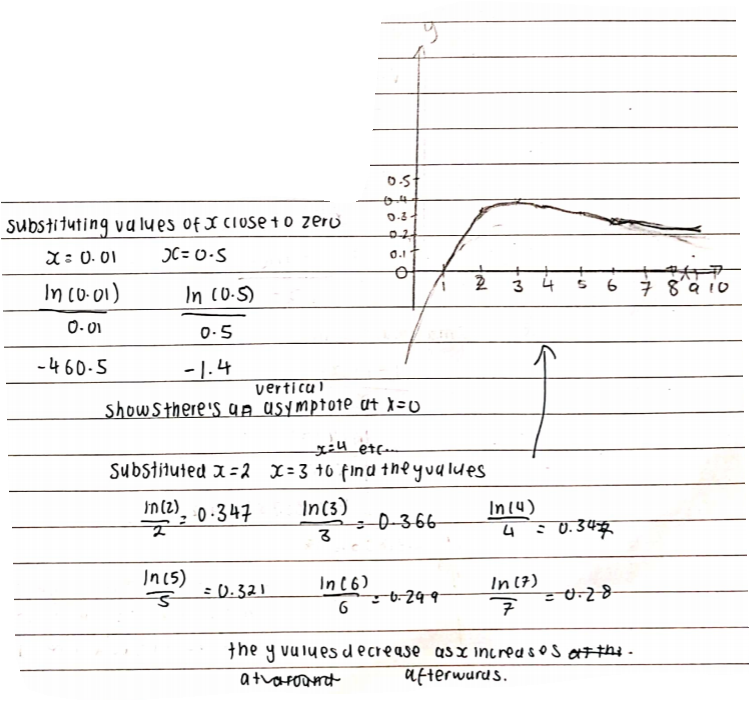 y
0.5
0.4
0.3
0.2
0.1
0
1 2 3 4 5 6 7 8 9 10
substituting values of x close to zero
x = 0.01 x = 0.5
ln(0.01) ln(0.5)
0.01 0.5
-460.5 -1.4
vertical
shows there's an asymptote at x=0
x=4 etc...
substituted x=2 x=3 to find the y values
ln(2) ln(3) ln(4)
2 = 0.347 3 = 0.366 4 = 0.347
ln(5) ln(6) ln(7)
5 = 0.321 6 = 0.299 7 = 0.28
the y values decrease as x increases at this.
at around afterwards.